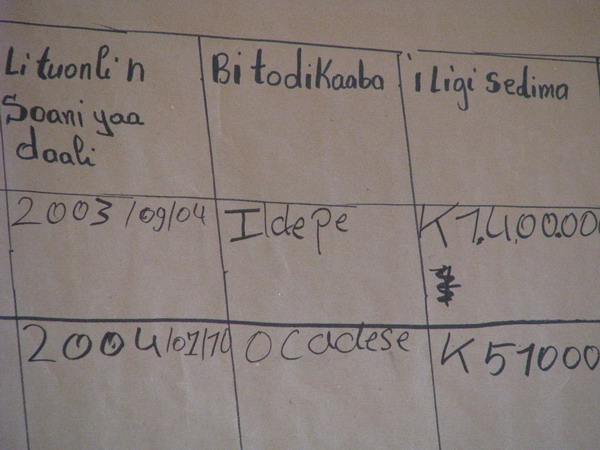 Lituonli'n
Soani yaa
daali
Bi todikaaba
'i Ligi sedima
2003/09/04
Ildepe
K 1.400.00
2004/07/10
OCadese
K 51000